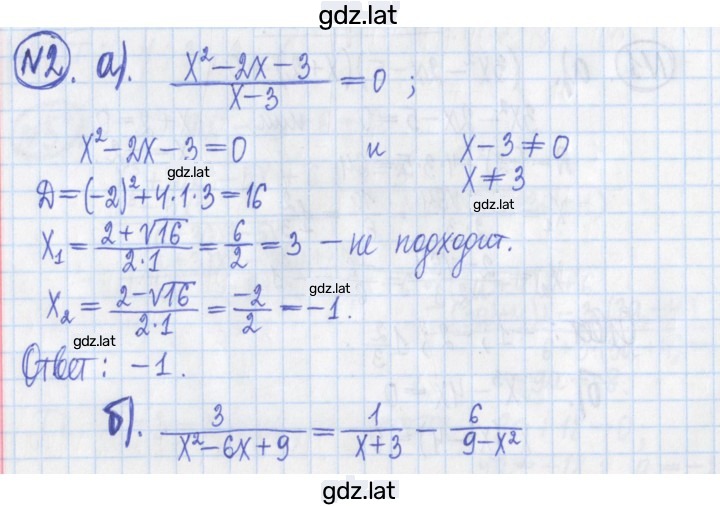 gdz.lat
№2. а). (x²-2x-3)/(x-3) = 0 ;
x²-2x-3=0 и x-3≠0
gdz.lat
Д=(-2)²+4·1·3=16 x≠3
gdz.lat
x₁ = (2+√16)/(2·1) = 6/2 = 3 – не подходит.
gdz.lat
x₂ = (2-√16)/(2·1) = -2/2 = -1.
gdz.lat
Ответ: -1.
б). 3/(x²-6x+9) = 1/(x+3) - 6/(9-x²)
gdz.lat
gdz.lat